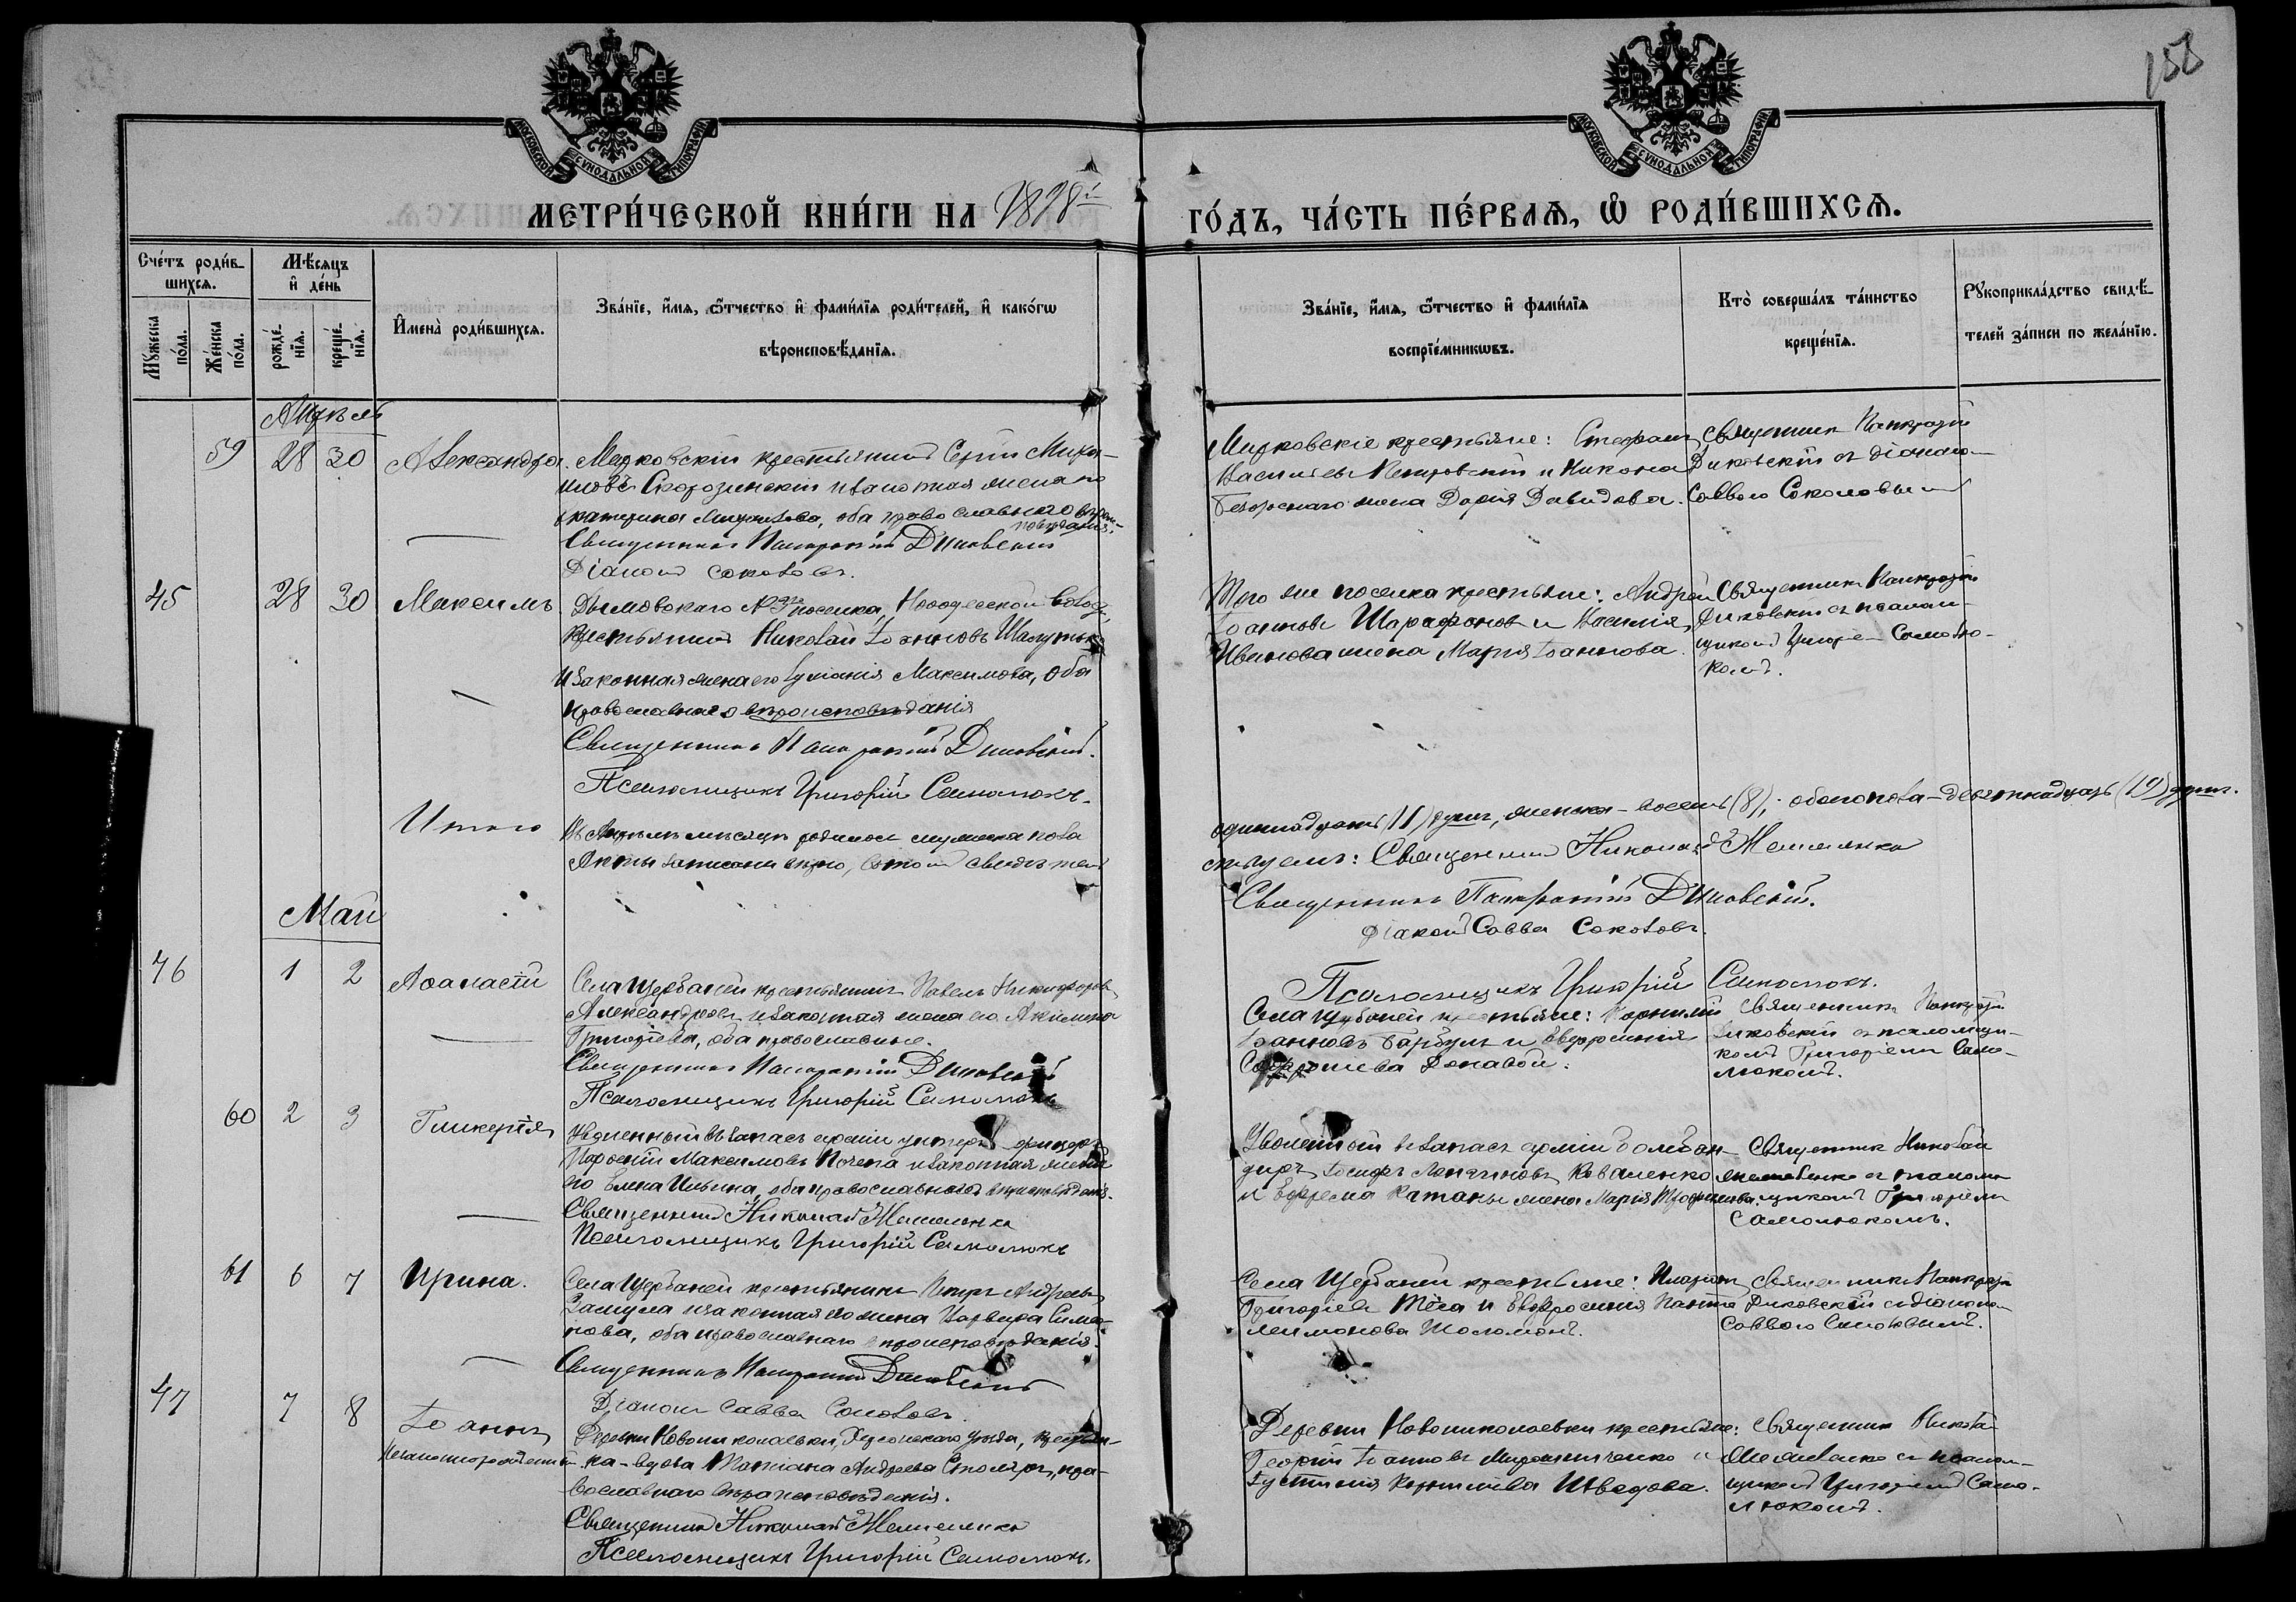 158
МОСКОВСКОЙ СѴНОДАЛЬНОЙ ТИПОГРАФІИ
МОСКОВСКОЙ СѴНОДАЛЬНОЙ ТИПОГРАФІИ
МЕТРИ́ЧЕСКОЙ КНИ́ГИ НА 1898й
ГО́ДЪ, ЧА́СТЬ ПЕ́РВАѦ, Ѽ РОДИ́ВШИХСѦ.
Сче́тъ роди́в-
шихсѧ.
Мꙋжеска по́ла.
Же́нска по́ла.
Мѣ́сѧцъ
и҆ де́нь
рожде́-
нїѧ.
креще́-
нїѧ.
И҆мена̀ роди́вшихсѧ.
Зва́нїе, и҆́мѧ, ѻ҆́тчество и҆ фами́лїѧ роди́телей, и҆ како́гѡ
вѣроисповѣ́данїѧ.
Зва́нїе, и҆́мѧ, ѻ҆́тчество и҆ фами́лїѧ
воспрїе́мникѡвъ.
Кто̀ соверша́лъ та́инство
креще́нїѧ.
Рꙋкоприкла́дство свидѣ́-
телей за́писи по жела́нїю.
Апрѣль
59 28 30 Александра.
крестьянинъ Сергій Миха-
иловъ и законная жена его
Екатерина оба православнаго вѣроис-
повѣданія.
Священникъ Панкратій Диковскій
Діаконъ Соколовъ.
крестьяне: Стефанъ
Васильевъ Петровскій и Никона
жена Дарія Давидова.
Священникъ Панкратій
Диковскій съ діакономъ
Саввою Соколовымъ
45 28 30 Максимъ
поселка,
Крестьянинъ Николай Іоанновъ
и законная жена его Максимова, оба
православнаго вѣроисповѣданія
Священникъ Панкратій Диковскій.
Псаломщикъ Григорій Самолюкъ.
Того же поселка крестьяне: Андрей
Іоанновъ Шарафановъ и Василія
жена Марія Іоаннова.
Священникъ Панкратій
Диковскій съ псалом-
щикомъ Григор. Самолю-
комъ.
Итого
Въ Апрѣлѣ мѣсяцѣ родилось мужеска пола
одиннадцать (11) душъ, женска – восемь (8), обоего пола – девятнадцать (19) душъ.
Акты записаны вѣрно, въ томъ свидѣтель-
ствуемъ: Священникъ Николай
Священникъ Панкратій Диковскій.
Діаконъ Савва Соколовъ.
Псаломщикъ Григорій Самолюкъ.
Май
46 1 2 Аѳанасій
Села Щербаней крестьянинъ Павелъ Никифоровъ
Александровъ и законная жена его Акилина
Григоріева, оба православные.
Священникъ Панкратій Диковскій
Псаломщикъ Григорій Самолюкъ
Села Щербаней крестьяне: Корнилій
Іоанновъ Барбулъ и Евфросинія
Священникъ Панкратій
Диковскій съ псаломщи-
комъ Григоріемъ Само-
люкомъ.
60 2 3 Гликерія
Уволенный въ запасъ арміи унтеръ-офицеръ
Максимовъ и законная жена
его Елена Ильина, оба православнаго вѣроисповѣданія.
Священникъ Николай
Псаломщикъ Григорій Самолюкъ
Уволенный въ запасъ арміи бомбар-
диръ Іосифъ Коваленко
и Ефрема жена Марія Трофимова.
Священникъ Николай
съ псаломщ
щикомъ Григоріемъ
Самолюкомъ.
61 6 7 Ирина.
Села Щербаней крестьянинъ Петръ Андреевъ
и законная его жена Варвара Симео-
нова, оба православнаго вѣроисповѣданія.
Священникъ Панкратій Диковскій
Діаконъ Савва Соколовъ.
Села Щербаней крестьяне: Иларіонъ
Григоріевъ и Евфросинія Панте-
леимонова Шоломонъ.
Священникъ Панкратій
Диковскій съ діакономъ
Саввою Соколовымъ.
47 7 8 Іоаннъ
незаконнорожденный.
Деревни Новониколаевки, Херсонскаго уѣзда, крестьян-
ка – вдова Татіана Андреева Столяръ, пра-
вославнаго вѣроисповѣданія.
Священникъ Николай
Псаломщикъ Григорій Самолюкъ.
Деревни Новониколаевки крестьяне:
Георгій Іоанновъ Мирошниченко и
Іустинія Корниліева Шведова.
Священникъ Николай
съ псалом-
щикомъ Григоріемъ Само-
люкомъ.